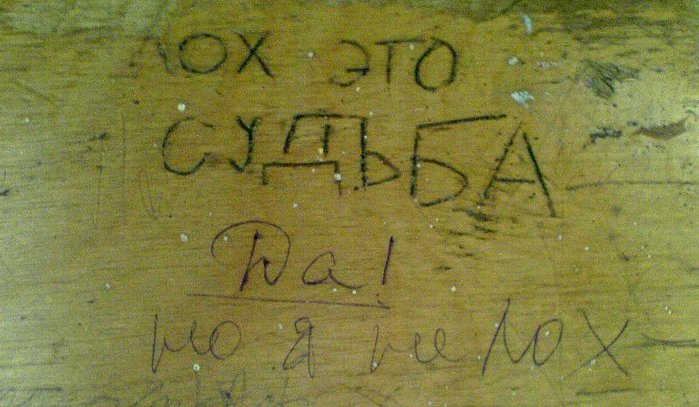 ЛОХ ЭТО
СУДЬБА
Да!
но я не лох